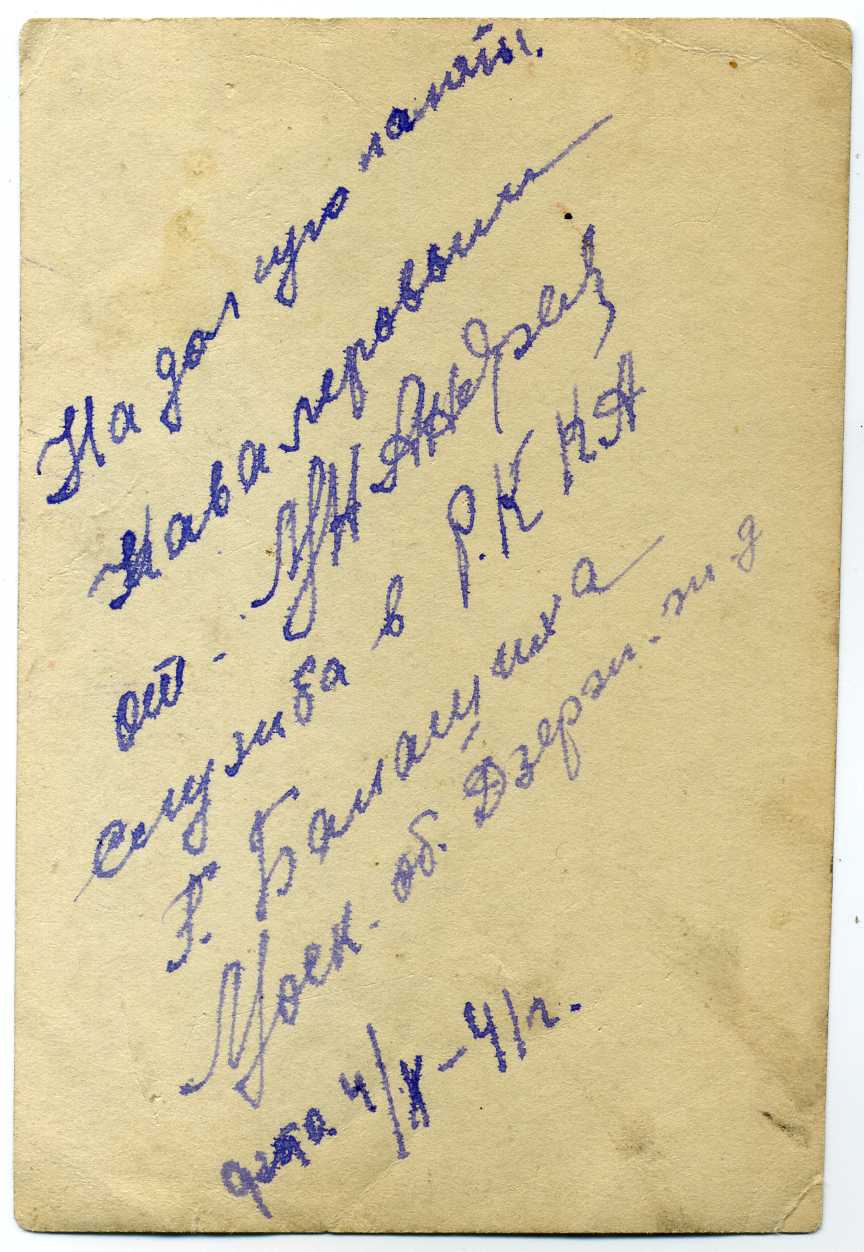 На долгую память.
Кавалеровым
от. МН Андреев
служба в Р.К К А
Г. Балашиха
Моск. об. Дзерж. ж. д
дата 4/X-41г.